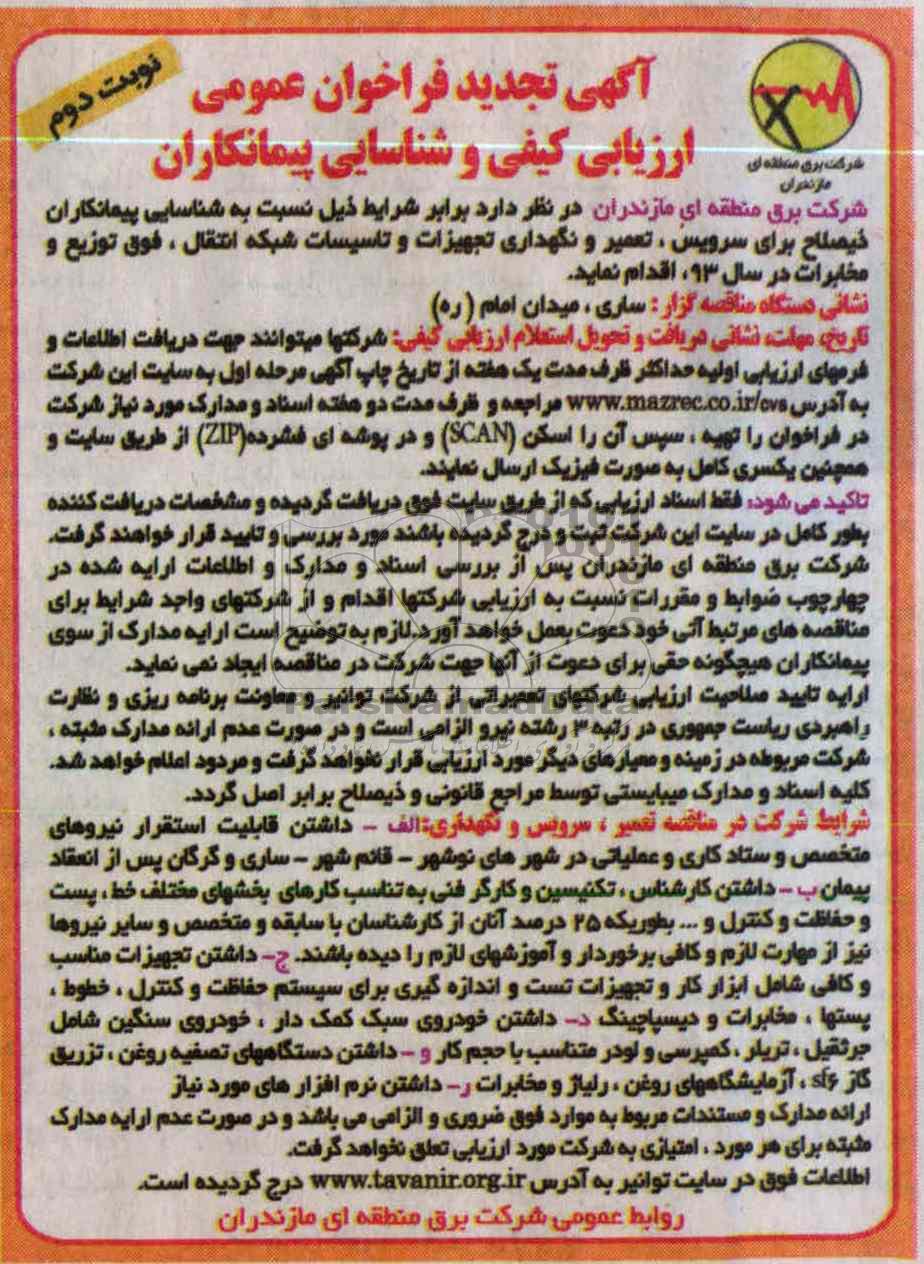 نوبت دوم
آگهی تجدید فراخوان عمومی
ارزیابی کیفی و شناسایی پیمانکاران
شرکت برق منطقه ای
مازندران
شرکت برق منطقه ای مازندران در نظر دارد برابر شرایط ذیل نسبت به شناسایی پیمانکاران
ذیصلاح برای سرویس ، تعمیر و نگهداری تجهیزات و تاسیسات شبکه انتقال ، فوق توزیع و
مخابرات در سال ۹۳، اقدام نماید.
نشانی دستگاه مناقصه گزار : ساری ، میدان امام ( ره)
تاریخ، مهلت، نشانی دریافت و تحویل استعلام ارزیابی کیفی: شرکتها میتوانند جهت دریافت اطلاعات و
فرمهای ارزیابی اولیه حداکثر ظرف مدت یک هفته از تاریخ چاپ آگهی مرحله اول به سایت این شرکت
به آدرس www.mazrec.co.ir/cvs مراجعه و ظرف مدت دو هفته اسناد و مدارک مورد نیاز شرکت
در فراخوان را تهیه ، سپس آن را اسکن (SCAN) و در پوشه ای فشرده(ZIP) از طریق سایت و
همچنین یکسری کامل به صورت فیزیک ارسال نمایند.
تاکید می شود: فقط اسناد ارزیابی که از طریق سایت فوق دریافت گردیده و مشخصات دریافت کننده
بطور کامل در سایت این شرکت ثبت و درج گردیده باشند مورد بررسی و تایید قرار خواهند گرفت.
شرکت برق منطقه ای مازندران پس از بررسی اسناد و مدارک و اطلاعات ارایه شده در
چهارچوب ضوابط و مقررات نسبت به ارزیابی شرکتها اقدام و از شرکتهای واجد شرایط برای
مناقصه های مرتبط آتی خود دعوت بعمل خواهد آورد.لازم به توضیح است ارایه مدارک از سوی
پیمانکاران هیچگونه حقی برای دعوت از آنها جهت شرکت در مناقصه ایجاد نمی نماید.
ارایه تایید صلاحیت ارزیابی شرکتهای تعمیراتی از شرکت توانیر و معاونت برنامه ریزی و نظارت
راهبردی ریاست جمهوری در رتبه ۳ رشته نیرو الزامی است و در صورت عدم ارائه مدارک مثبته ،
شرکت مربوطه در زمینه و معیارهای دیگر مورد ارزیابی قرار نخواهد گرفت و مردود اعلام خواهد شد.
کلیه اسناد و مدارک میبایستی توسط مراجع قانونی و ذیصلاح برابر اصل گردد.
شرایط شرکت در مناقصه تعمیر ، سرویس و نگهداری:الف - داشتن قابلیت استقرار نیروهای
متخصص و ستاد کاری و عملیاتی در شهر های نوشهر - قائم شهر - ساری و گرگان پس از انعقاد
پیمان ب - داشتن کارشناس ، تکنیسین و کارگر فنی به تناسب کارهای بخشهای مختلف خط ، پست
و حفاظت و کنترل و ... بطوریکه ۲۵ درصد آنان از کارشناسان با سابقه و متخصص و سایر نیروها
نیز از مهارت لازم و کافی برخوردار و آموزشهای لازم را دیده باشند. ج- داشتن تجهیزات مناسب
و کافی شامل ابزار کار و تجهیزات تست و اندازه گیری برای سیستم حفاظت و کنترل ، خطوط ،
پستها ، مخابرات و دیسپاچینگ د- داشتن خودروی سبک کمک دار ، خودروی سنگین شامل
جرثقیل ، تریلر ، کمپرسی و لودر متناسب با حجم کار و - داشتن دستگاههای تصفیه روغن ، تزریق
گاز sf۶ ، آزمایشگاههای روغن ، رلیاژ و مخابرات ر- داشتن نرم افزار های مورد نیاز
ارائه مدارک و مستندات مربوط به موارد فوق ضروری و الزامی می باشد و در صورت عدم ارایه مدارک
مثبته برای هر مورد ، امتیازی به شرکت مورد ارزیابی تعلق نخواهد گرفت.
اطلاعات فوق در سایت توانیر به آدرس www.tavanir.org.ir درج گردیده است.
روابط عمومی شرکت برق منطقه ای مازندران
ParsNamadData